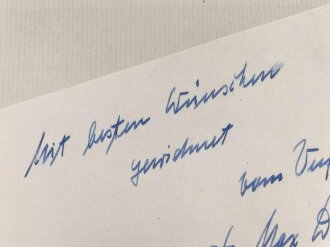 Mit besten Wünschen
gewidmet
vom
Max D